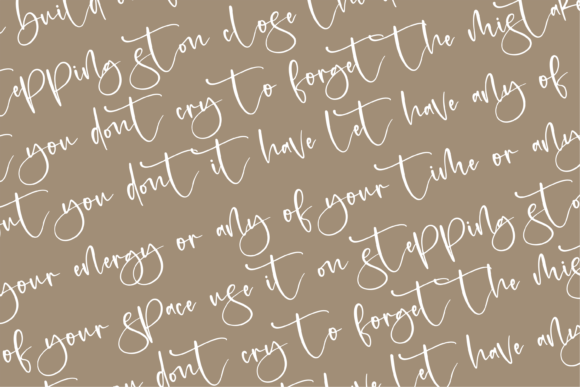 build
stepping ston close the
you dont cry to forget the mistak
you dont it have let have any of
your energy or any of your time or any
of your space use it on stepping sto
you dont cry to forget the mis
it have let have any